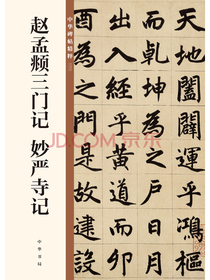 赵孟頫三门记 妙严寺记
中华碑帖精粹
中华书局
天地闔闢運乎鴻樞
而乾坤為之戶日月
出入經乎黃道而卯
酉為之門是故建設
JD.COM 京东